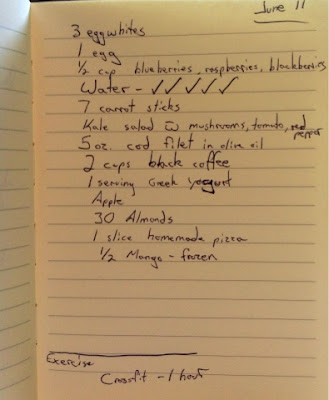 June 11
3 egg whites
1 egg
1/2 cup blueberries, raspberries, blackberries
Water - ✓ ✓ ✓ ✓ ✓
7 carrot sticks
Kale salad w mushrooms, tomato, red pepper
5 oz. cod filet in olive oil
2 cups black coffee
1 serving Greek yogurt
Apple
30 Almonds
1 slice homemade pizza
1/2 Mango - frozen
Exercise
Crossfit - 1 hour